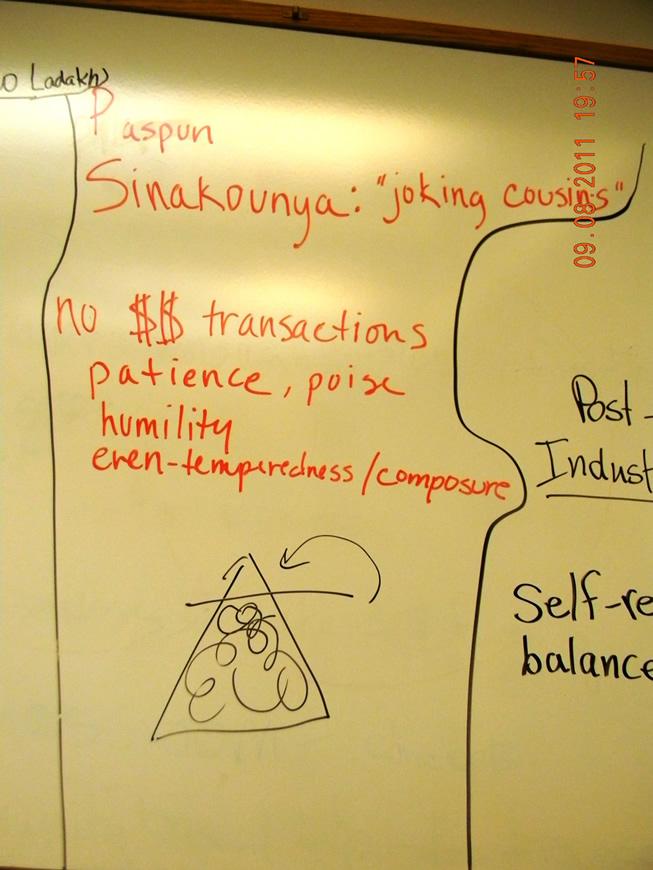 o Ladakh)
Paspun
Sinakounya: "joking cousins"
no $$ transactions
patience, poise
humility
even-temperedness/composure
Post-
Indust
Self-re
balance
09.08.2011 19:57